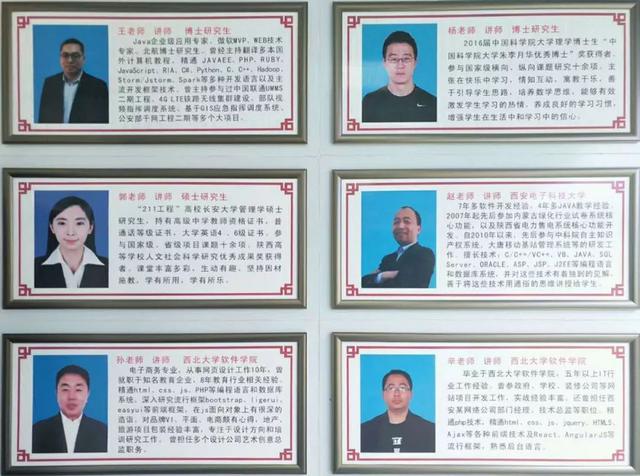 王老师 讲师 博士研究生
Java企业级应用专家，微软MVP，WEB技术
专家，北航博士研究生。曾经主持翻译多本国
外计算机教程，精通 JAVAEE，PHP，RUBY，
JavaScript，RIA，C#，Python，C，C++，Hadoop，
Storm/Jstorm，Spark等多种开发语言以及主
流开发框架技术，曾主持参与过中国联通UMMS
二期工程，4G LTE铁路无线集群建设，部队视
频指挥调度系统，基于GIS应急指挥调度系统，
公安部千网工程二期等多个大项目。
杨老师 讲师 博士研究生
2016届中国科学院大学理学博士生“中
国科学院大学朱李月华优秀博士”奖获得者，
参与国家级横向、纵向课题研究十余项。主
张在快乐中学习，情知互动，寓教于乐，善
于引导学生思路，培养数学思维，能够有效
激发学生学习的热情，养成良好的学习习惯，
增强学生在生活中和学习中的信心。
郭老师 讲师 硕士研究生
“211工程”高校长安大学管理学硕士
研究生，持有高级中学教师资格证书，普
通话等级证书，大学英语4、6级证书。参
与国家级、省级项目课题十余项，陕西高
等学校人文社会科学研究优秀成果奖获得
者。课堂丰富多彩，生动有趣，坚持因材
施教，学有所乐，学有所乐。
赵老师 讲师 西安电子科技大学
7年多软件开发经验，4年多JAVA教学经验，
2007年起先后参加内蒙古绿化行业试卷系统核
心功能，以及陕西省电力售电系统核心功能开
发，自2010年以来，先后参与中科院自主知识
产权系统，大唐移动基站管理系统等的研发工
作。擅长技术：C/C++/VC++，VB，JAVA，SQL
Server，ORACLE，ASP，JSP，J2EE等编程语言
和数据库系统，并对这些技术有着独到的见解，
善于将这些技术用通俗的思维讲授给学生。
孙老师 讲师 西北大学软件学院
电子商务专业，从事网页设计工作10年，曾
就职于知名教育企业，8年教育行业相关经验。
精通html，css，js，PHP等编程语言和数据库
系统，深入研究流行框架bootstrap，ligerui，
easyui等前端框架，在js面向对象上有很深的
造诣，对品牌VI、平面、电商颇有心得，地产、
旅游项目包装经验丰富，专注于设计方向和培
训研究工作。曾担任多个设计公司艺术创意总
监职务。
辛老师 讲师 西北大学软件学院
毕业于西北大学软件学院，五年以上IT行
业工作经验，曾参政府、学校、装修公司等网
站项目开发工作，实战经验丰富，还曾担任西
安某网络公司部门经理、技术总监等职位。精
通php技术，精通html，css，js，jquery，HTML5，
Ajax等各种前端技术及React，AngularJS等
流行框架，熟悉后台语言。